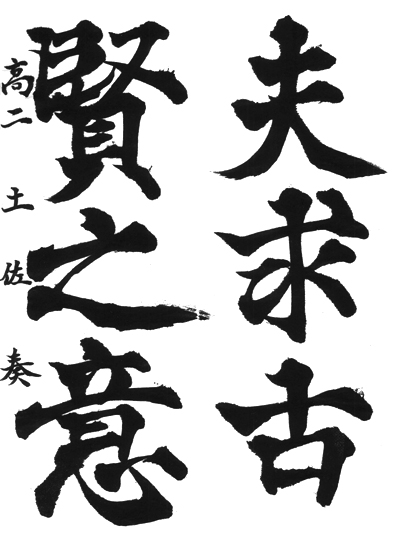 夫求古
賢之意
高二 土佐 奏